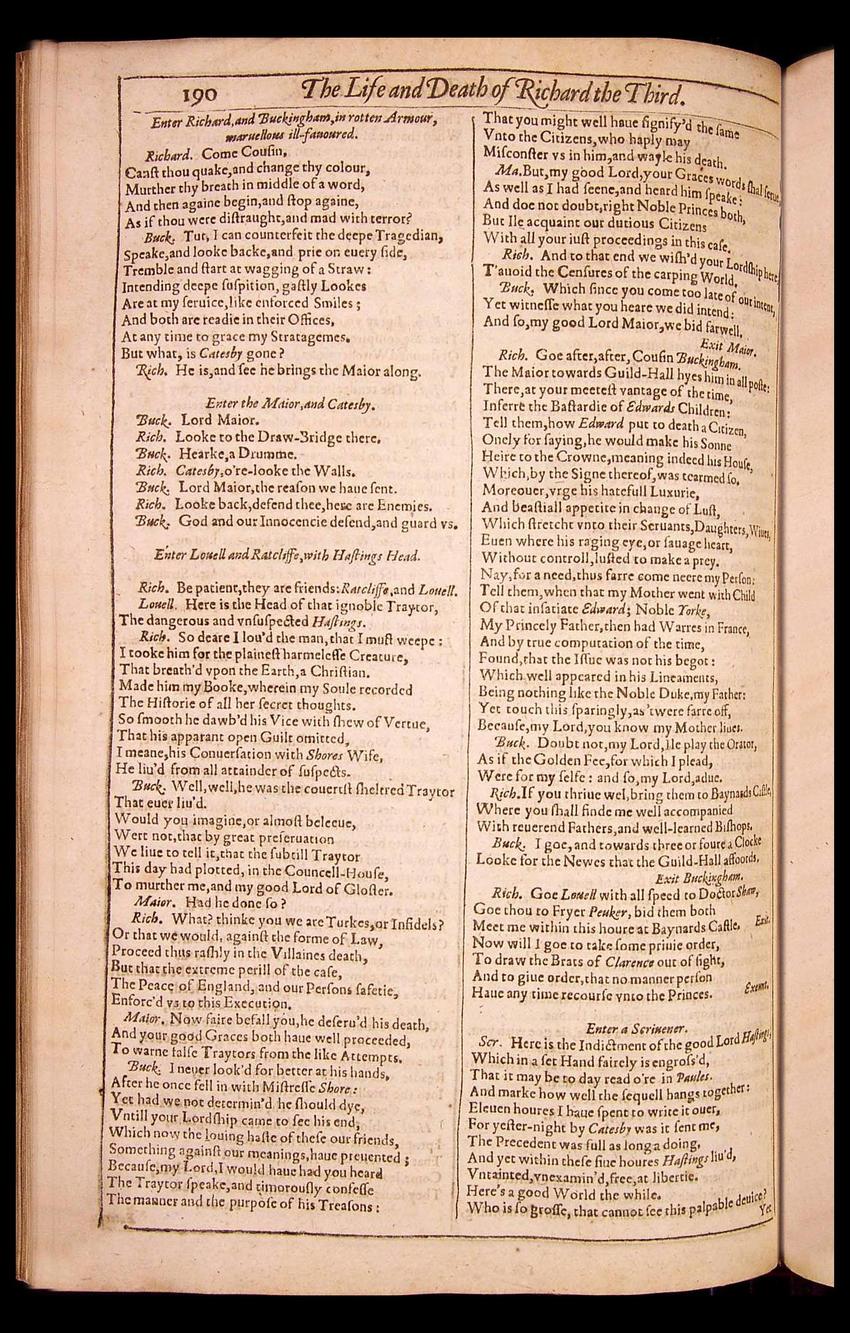 190
The Life and Death of Richard the Third.
Enter Richard, and Buckingham, in rotten Armour,
maruellous ill-fauoured.
Richard. Come Cousin,
Canst thou quake, and change thy colour,
Murther thy breath in middle of a word,
And then againe begin, and stop againe,
As if thou were distraught, and mad with terror?
Buck. Tut, I can counterfeit the deepe Tragedian,
Speake, and looke backe, and prie on euery side,
Tremble and start at wagging of a Straw:
Intending deepe suspition, gastly Lookes
Are at my seruice, like enforced Smiles;
And both are readie in their Offices,
At any time to grace my Stratagemes.
But what, is Catesby gone?
Rich. He is, and see he brings the Maior along.
Enter the Maior, and Catesby.
Buck. Lord Maior.
Rich. Looke to the Draw-Bridge there.
Buck. Hearke, a Drumme.
Rich. Catesby, o're-looke the Walls.
Buck. Lord Maior, the reason we haue sent.
Rich. Looke back, defend thee, here are Enemies.
Buck. God and our Innocencie defend, and guard vs.
Enter Louell and Ratcliffe, with Hastings Head.
Rich. Be patient, they are friends: Ratcliffe, and Louell.
Louell. Here is the Head of that ignoble Traytor,
The dangerous and vnsuspected Hastings.
Rich. So deare I lou'd the man, that I must weepe:
I tooke him for the plainest harmelesse Creature,
That breath'd vpon the Earth, a Christian.
Made him my Booke, wherein my Soule recorded
The Historie of all her secret thoughts.
So smooth he dawb'd his Vice with shew of Vertue,
That his apparant open Guilt omitted,
I meane, his Conuersation with Shores Wife,
He liu'd from all attainder of suspects.
Buck. Well, well, he was the couertst sheltred Traytor
That euer liu'd.
Would you imagine, or almost beleeue,
Wert not, that by great preseruation
We liue to tell it, that the subtill Traytor
This day had plotted, in the Councell-House,
To murther me, and my good Lord of Gloster.
Maior. Had he done so?
Rich. What? thinke you we are Turkes, or Infidels?
Or that we would, against the forme of Law,
Proceed thus rashly in the Villaines death,
But that the extreme perill of the case,
The Peace of England, and our Persons safetie,
Enforc'd vs to this Execution.
Maior. Now faire befall you, he deseru'd his death,
And your good Graces both haue well proceeded,
To warne false Traytors from the like Attempts.
Buck. I neuer look'd for better at his hands,
After he once fell in with Mistresse Shore:
Yet had we not determin'd he should dye,
Vntill your Lordship came to see his end,
Which now the louing haste of these our friends,
Something against our meanings, haue preuented;
Because, my Lord, I would haue had you heard
The Traytor speake, and timorously confesse
The manner and the purpose of his Treasons:
That you might well haue signify'd the same
Vnto the Citizens, who haply may
Misconster vs in him, and wayle his death.
Ma. But, my good Lord, your Graces words shal serue,
As well as I had seene, and heard him speake:
And doe not doubt, right Noble Princes both,
But Ile acquaint our dutious Citizens
With all your iust proceedings in this case.
Rich. And to that end we wish'd your Lordship here
T'auoid the Censures of the carping World.
Buck. Which since you come too late of our intent,
Yet witnesse what you heare we did intend:
And so, my good Lord Maior, we bid farwell.
Exit Maior.
Rich. Goe after, after, Cousin Buckingham.
The Maior towards Guild-Hall hyes him in all poste:
There, at your meetest vantage of the time,
Inferre the Bastardie of Edwards Children:
Tell them, how Edward put to death a Citizen,
Onely for saying, he would make his Sonne
Heire to the Crowne, meaning indeed his House,
Which, by the Signe thereof, was tearmed so.
Moreouer, vrge his hatefull Luxurie,
And beastiall appetite in change of Lust,
Which stretcht vnto their Seruants, Daughters, Wiues,
Euen where his raging eye, or sauage heart,
Without controll, lusted to make a prey.
Nay, for a need, thus farre come neere my Person:
Tell them, when that my Mother went with Child
Of that insatiate Edward; Noble Yorke,
My Princely Father, then had Warres in France,
And by true computation of the time,
Found, that the Issue was not his begot:
Which well appeared in his Lineaments,
Being nothing like the Noble Duke, my Father:
Yet touch this sparingly, as 'twere farre off,
Because, my Lord, you know my Mother liues.
Buck. Doubt not, my Lord, Ile play the Orator,
As if the Golden Fee, for which I plead,
Were for my selfe: and so, my Lord, adue.
Rich. If you thriue wel, bring them to Baynards Castle,
Where you shall finde me well accompanied
With reuerend Fathers, and well-learned Bishops.
Buck. I goe, and towards three or foure a Clocke
Looke for the Newes that the Guild-Hall affoords.
Exit Buckingham.
Rich. Goe Louell with all speed to Doctor Shaw,
Goe thou to Fryer Peuker, bid them both
Meet me within this houre at Baynards Castle. Exit.
Now will I goe to take some priuie order,
To draw the Brats of Clarence out of sight,
And to giue order, that no manner person
Haue any time recourse vnto the Princes. Exeunt.
Enter a Scriuener.
Scr. Here is the Indictment of the good Lord Hastings,
Which in a set Hand fairely is engross'd,
That it may be to day read o're in Paules.
And marke how well the sequell hangs together:
Eleuen houres I haue spent to write it ouer,
For yester-night by Catesby was it sent me,
The Precedent was full as long a doing,
And yet within these fiue houres Hastings liu'd,
Vntainted, vnexamin'd, free, at libertie.
Here's a good World the while.
Who is so grosse, that cannot see this palpable deuice?
Yet